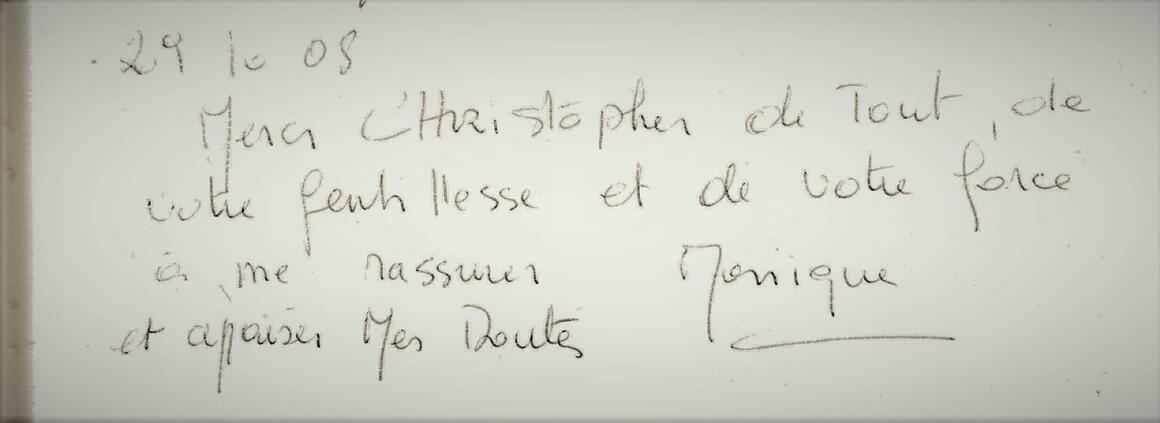 29 10 08
Merci CHristopher de Tout, de
votre gentillesse et de votre force
à me rassurer Monique
et apaiser Mes Doutes